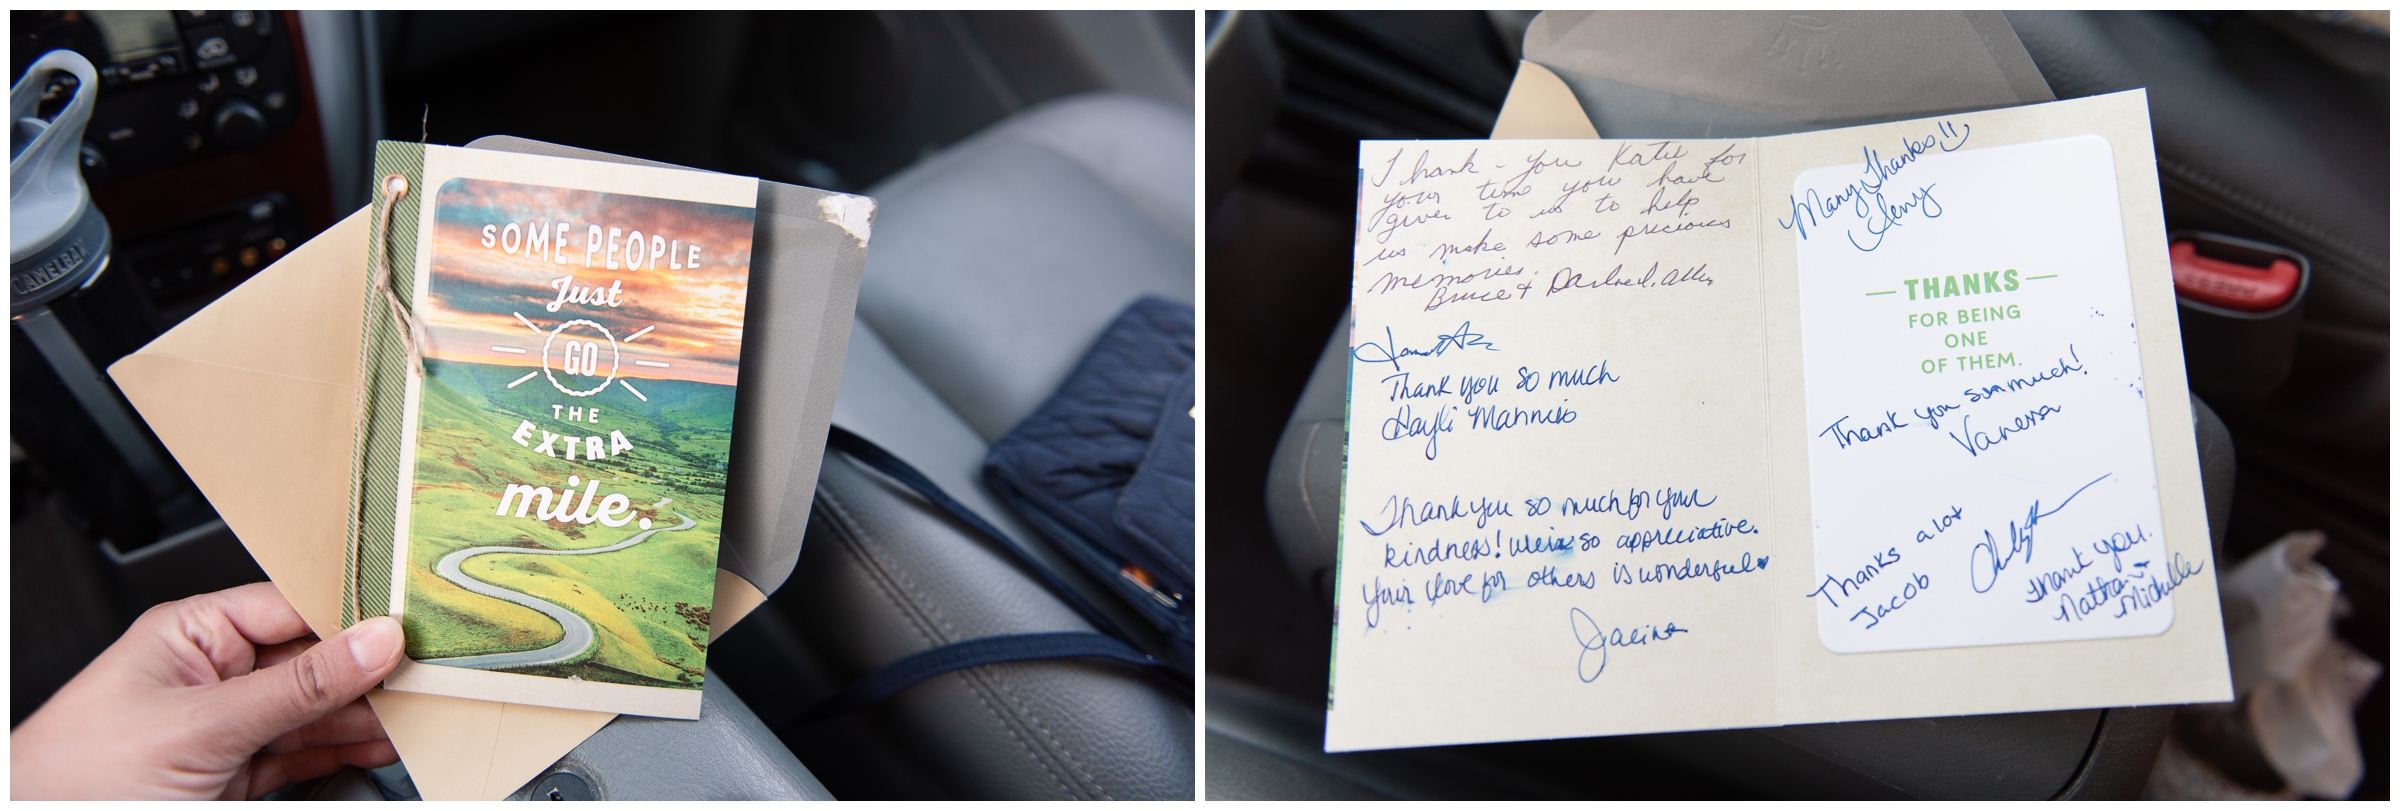 CAMELBAK
SOME PEOPLE
Just
GO
THE
EXTRA
mile.
Thank-you Katie for
your time you have
given to us to help
us make some precious
memories.
Bruce &
Thank you so much
Hayli
Thank you so much for your
kindness! We're so appreciative.
Your love for others is wonderful
Many Thanks!!
THANKS
FOR BEING
ONE
OF THEM.
Thank you so much!
Vanessa
Thanks a lot
Jacob
Thank you.
Nathan
Michelle
PRESS